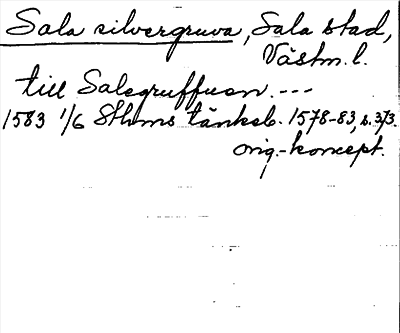 Sala silvergruva, Sala stad,
Västm. l.
till Salegruffuen. ---
1583 1/6 Sthms tänkeb. 1578-83, s. 373.
orig.-koncept.